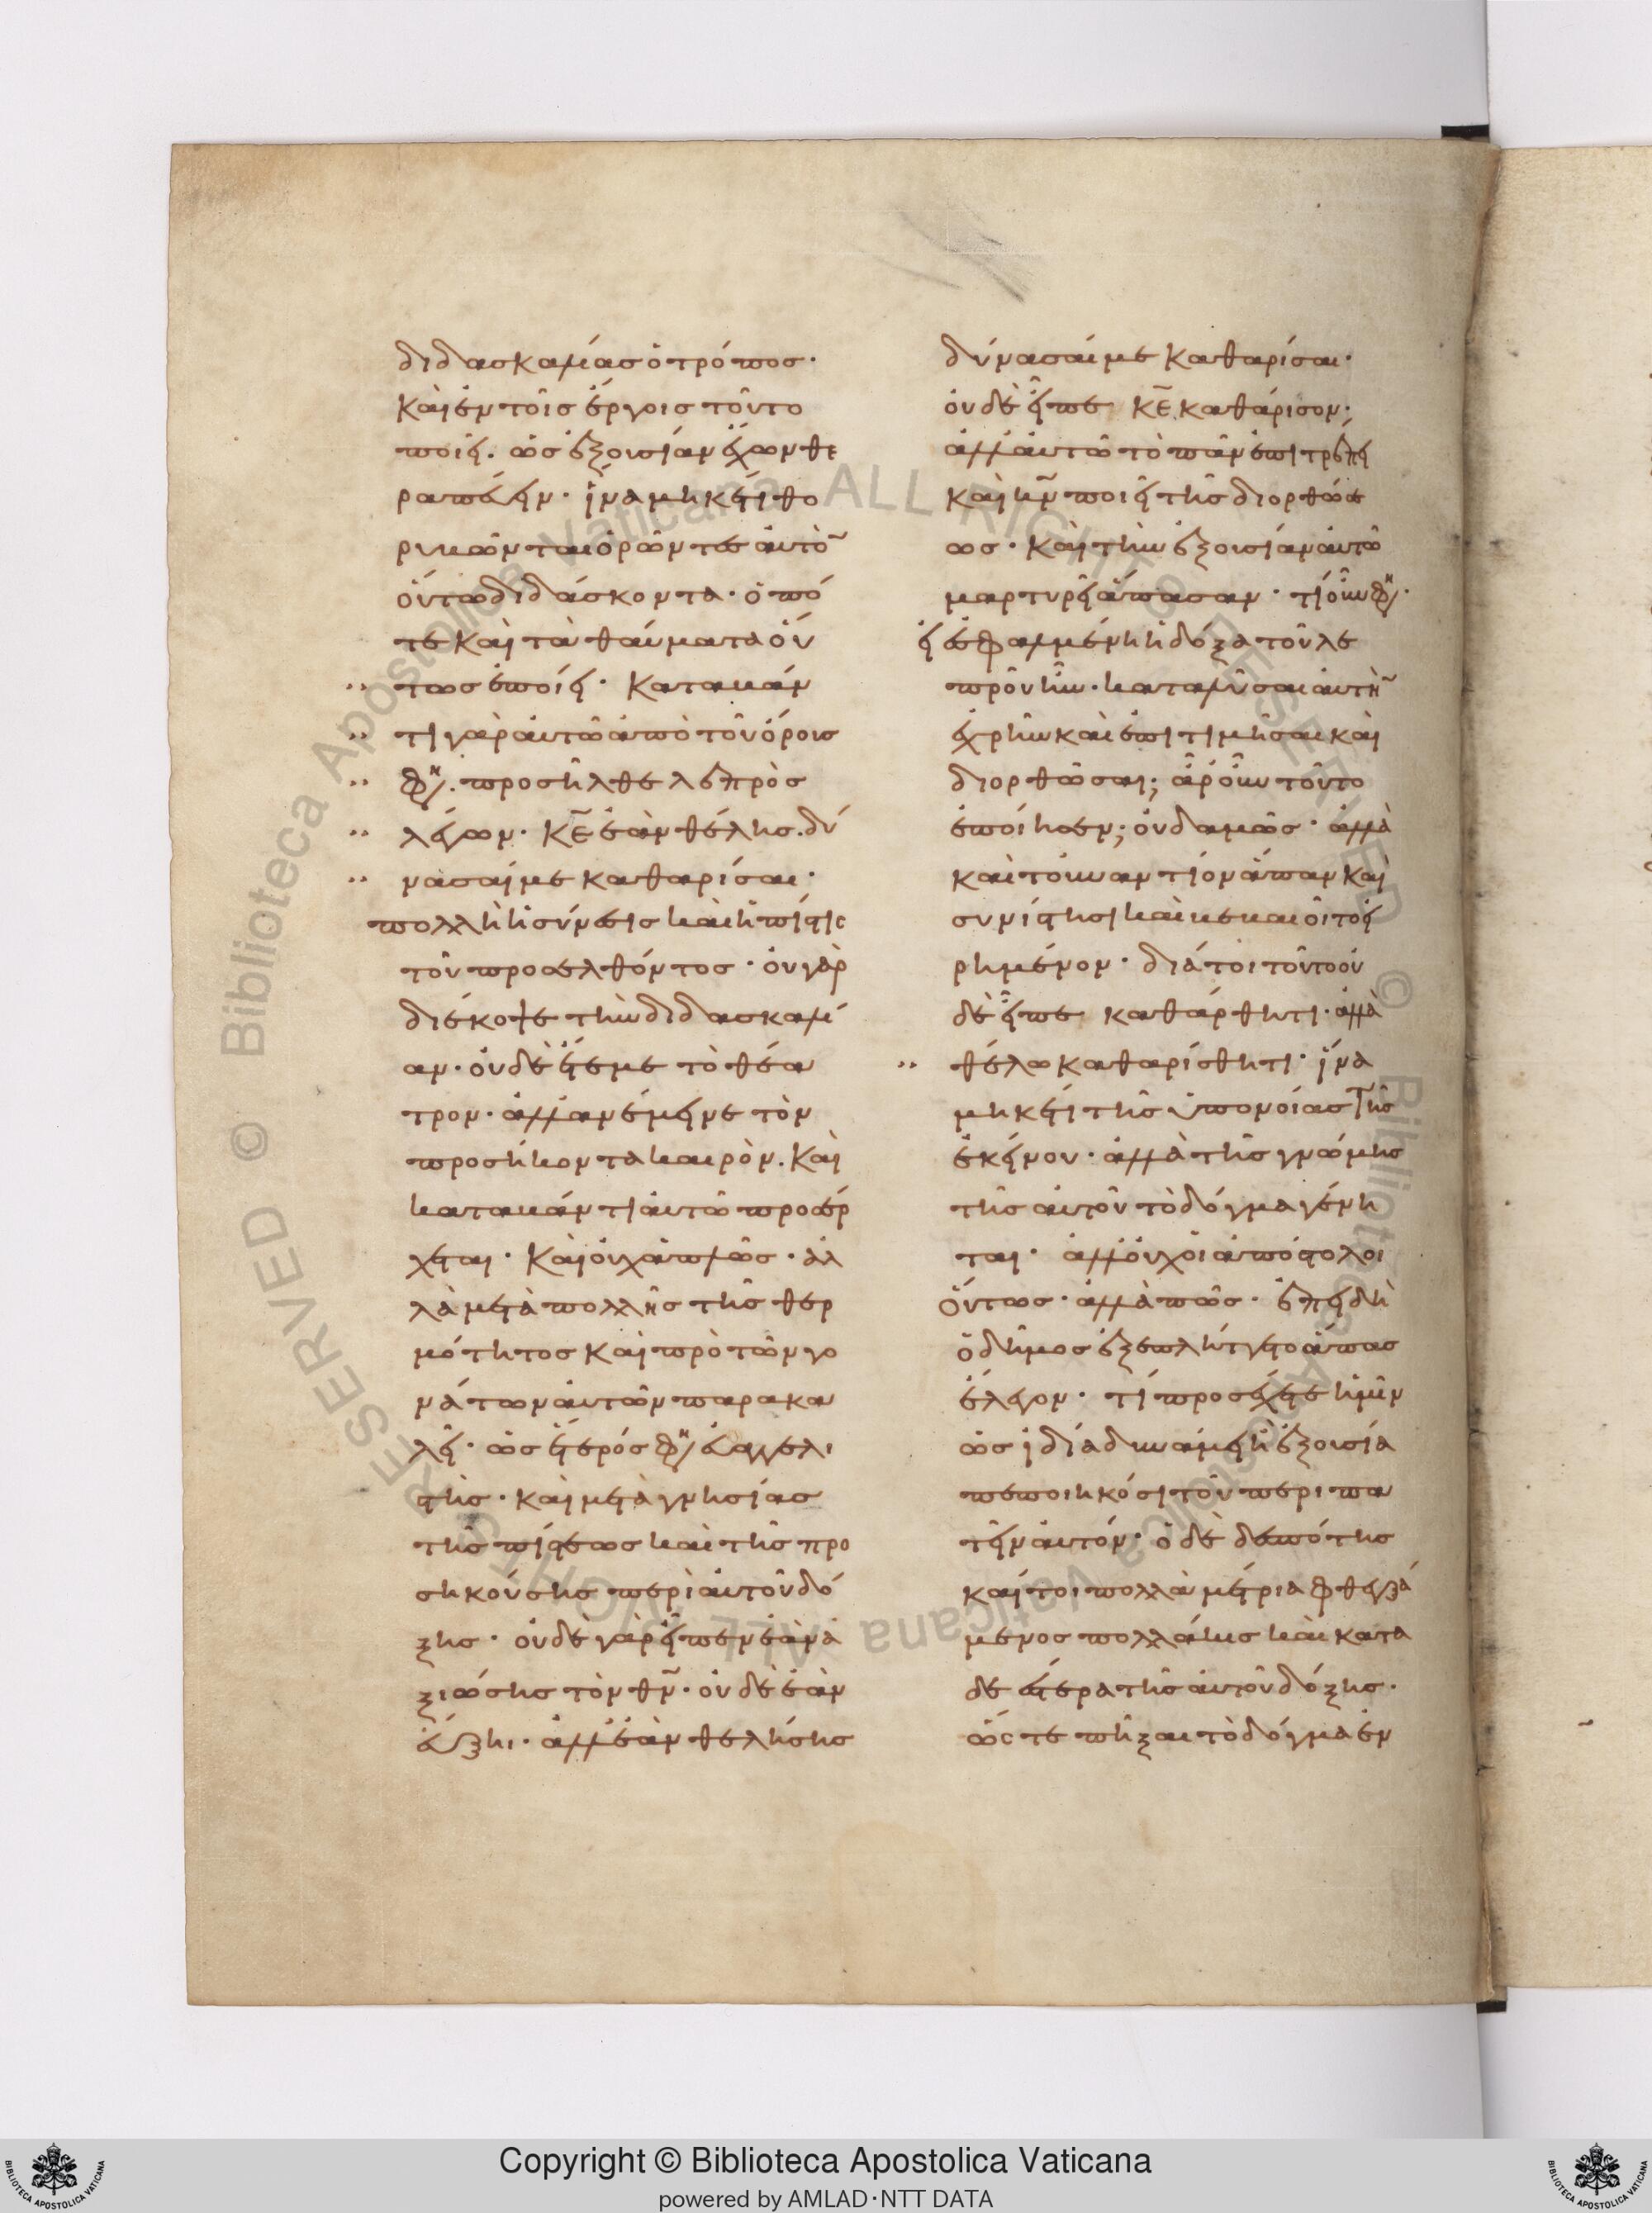 διδασκαλίας ὁ τρόπος·
καὶ ἐν τοῖς ἔργοις τοῦτο
ποιεῖ. ὡς ἐξουσίαν ἔχων θε
ραπεύειν· ἵνα μηκέτι θο
ρυβῶνται ὁρῶντες αὐτὸ̅
οὕτω διδάσκοντα· ὁπό
τε καὶ τὰ θαύματα οὕ
τως ἐποίει· Καταβάν
τι γὰρ αὐτῶ ἀπὸ τοῦ ὄρους
φη. προσῆλθε λεπρὸς
λέγων· κ̅ε̅ ἐὰν θέλης. δύ
νασαί με καθαρίσαι·
πολλὴ ἡ σύνεσις καὶ ἡ πίστις
τοῦ προσελθόντος· οὐ γὰρ
διέκοψε τὴν διδασκαλί
αν· οὐδὲ ἔτεμε τὸ θέα
τρον· ἀλλ' ἀνέμεινε τὸν
προσήκοντα καιρὸν. καὶ
καταβάντι αὐτῶ προσέρ
χεται· καὶ οὐχ ἁπλῶς· ἀλ
λὰ μετὰ πολλῆς τῆς θερ
μότητος καὶ πρὸ τῶν γο
νάτων αὐτῶν παρακα
λεῖ· ὡς ἕτερός φη εὐαγγελι
στὴς· καὶ μετὰ γνησίας
τῆς πίστεως καὶ τῆς προ
σηκούσης περὶ αὐτοῦ δό
ξης· οὐδὲ γὰρ εἶπεν ἐὰν ἀ
ξιώσης τὸν θ̅ν̅· οὐδὲ ἐὰν
εὔξηι· ἀλλ' ἐὰν θελήσης
δύνασαί με καθαρίσαι·
οὐδὲ εἶπε κ̅ε̅ καθάρισον·
ἀλλ' αὐτῶ τὸ πᾶν ἐπιτρέπει
καὶ κ̅ν̅ ποιεῖ τῆς διορθώσε
ως· καὶ τὴν ἐξουσίαν αὐτῶ
μαρτυρεῖ ἅπασαν· τί οὖν φη·
εἰ ἐσφαλμένη ἡ δόξα τοῦ λε
προῦ ἦν· καταλῦσαι αὐτὴ̅
ἐχρῆν καὶ ἐπιτιμῆσαι καὶ
διορθῶσαι; ἆρ' οὖν τοῦτο
ἐποίησεν; οὐδαμῶς· ἀλλὰ
καὶ τοὐναντίον ἅπαν καὶ
συνίστησι καὶ βεβαιοῖ τὸ εἰ
ρημένον· διάτοι τοῦτο οὐ
δὲ εἶπε καθάρθητι· ἀλλὰ
θέλω καθαρίσθητι· ἵνα
μηκέτι τῆς ὑπονοίας τῆς
ἐκείνου· ἀλλὰ τῆς γνώμης
τῆς αὐτοῦ τὸ δόγμα γένη
ται· ἀλλ' οὐχ οἱ ἀπόστολοι
οὕτως· ἀλλὰ πῶς· ἐπειδὴ
ὁ δῆμος ἐξεπλήττετο ἅπας
ἔλεγον· τί προσέχετε ἡμῖν
ὡς ἰδία δυνάμει ἢ ἐξουσία
πεποιηκόσι τοῦ περιπα
τεῖν αὐτόν· ὁ δὲ δεσπότης
καίτοι πολλὰ μέτρια φθεγξά
μενος πολλάκις καὶ κατα
δεέστερα τῆς αὐτοῦ δόξης·
ὥστε πῆξαι τὸ δόγμα ἐν